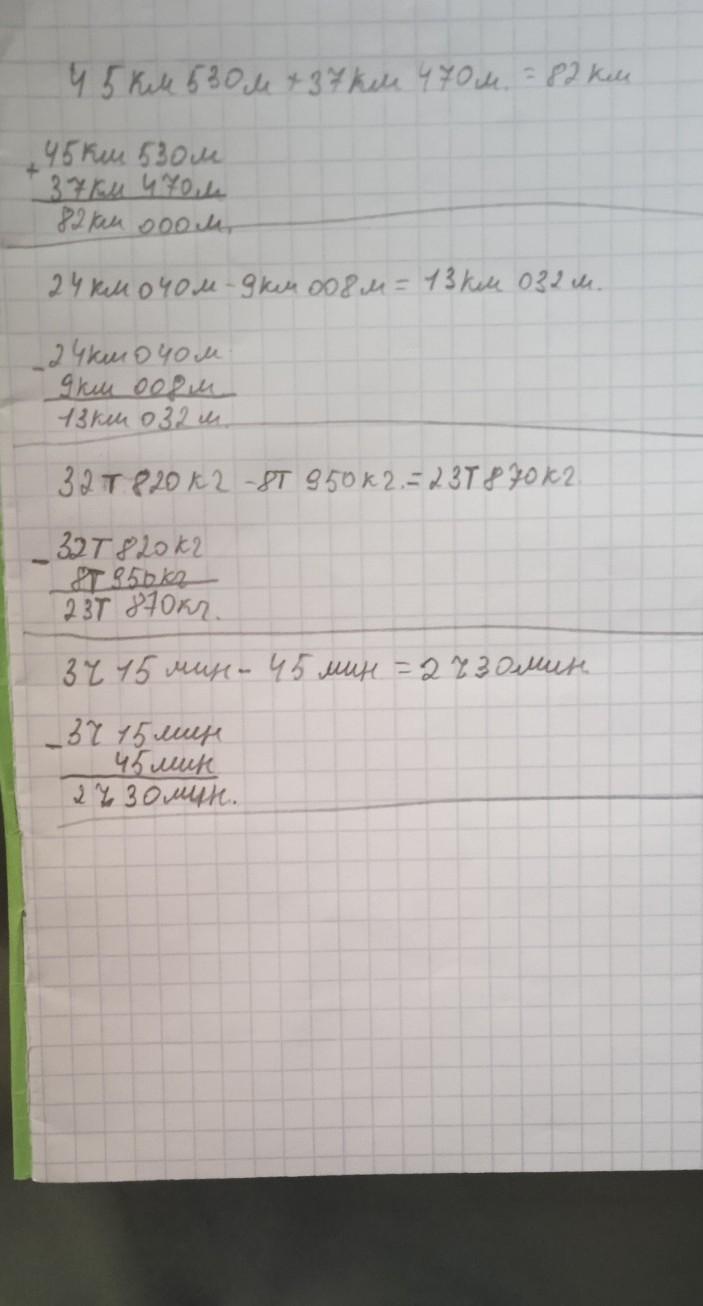 45 км 530м + 37км 470м. = 82 км
+ 45км 530м
37км 470м
82км 000м.
24 км 040м - 9км 008м = 13км 032м.
- 24км 040м
9км 008м
13км 032м.
32т 820кг - 8т 950кг. = 23т 870кг
- 32т 820кг
8т 950кг
23т 870кг.
3ч 15мин - 45мин = 2ч 30мин
- 3ч 15мин
45мин
2ч 30мин.